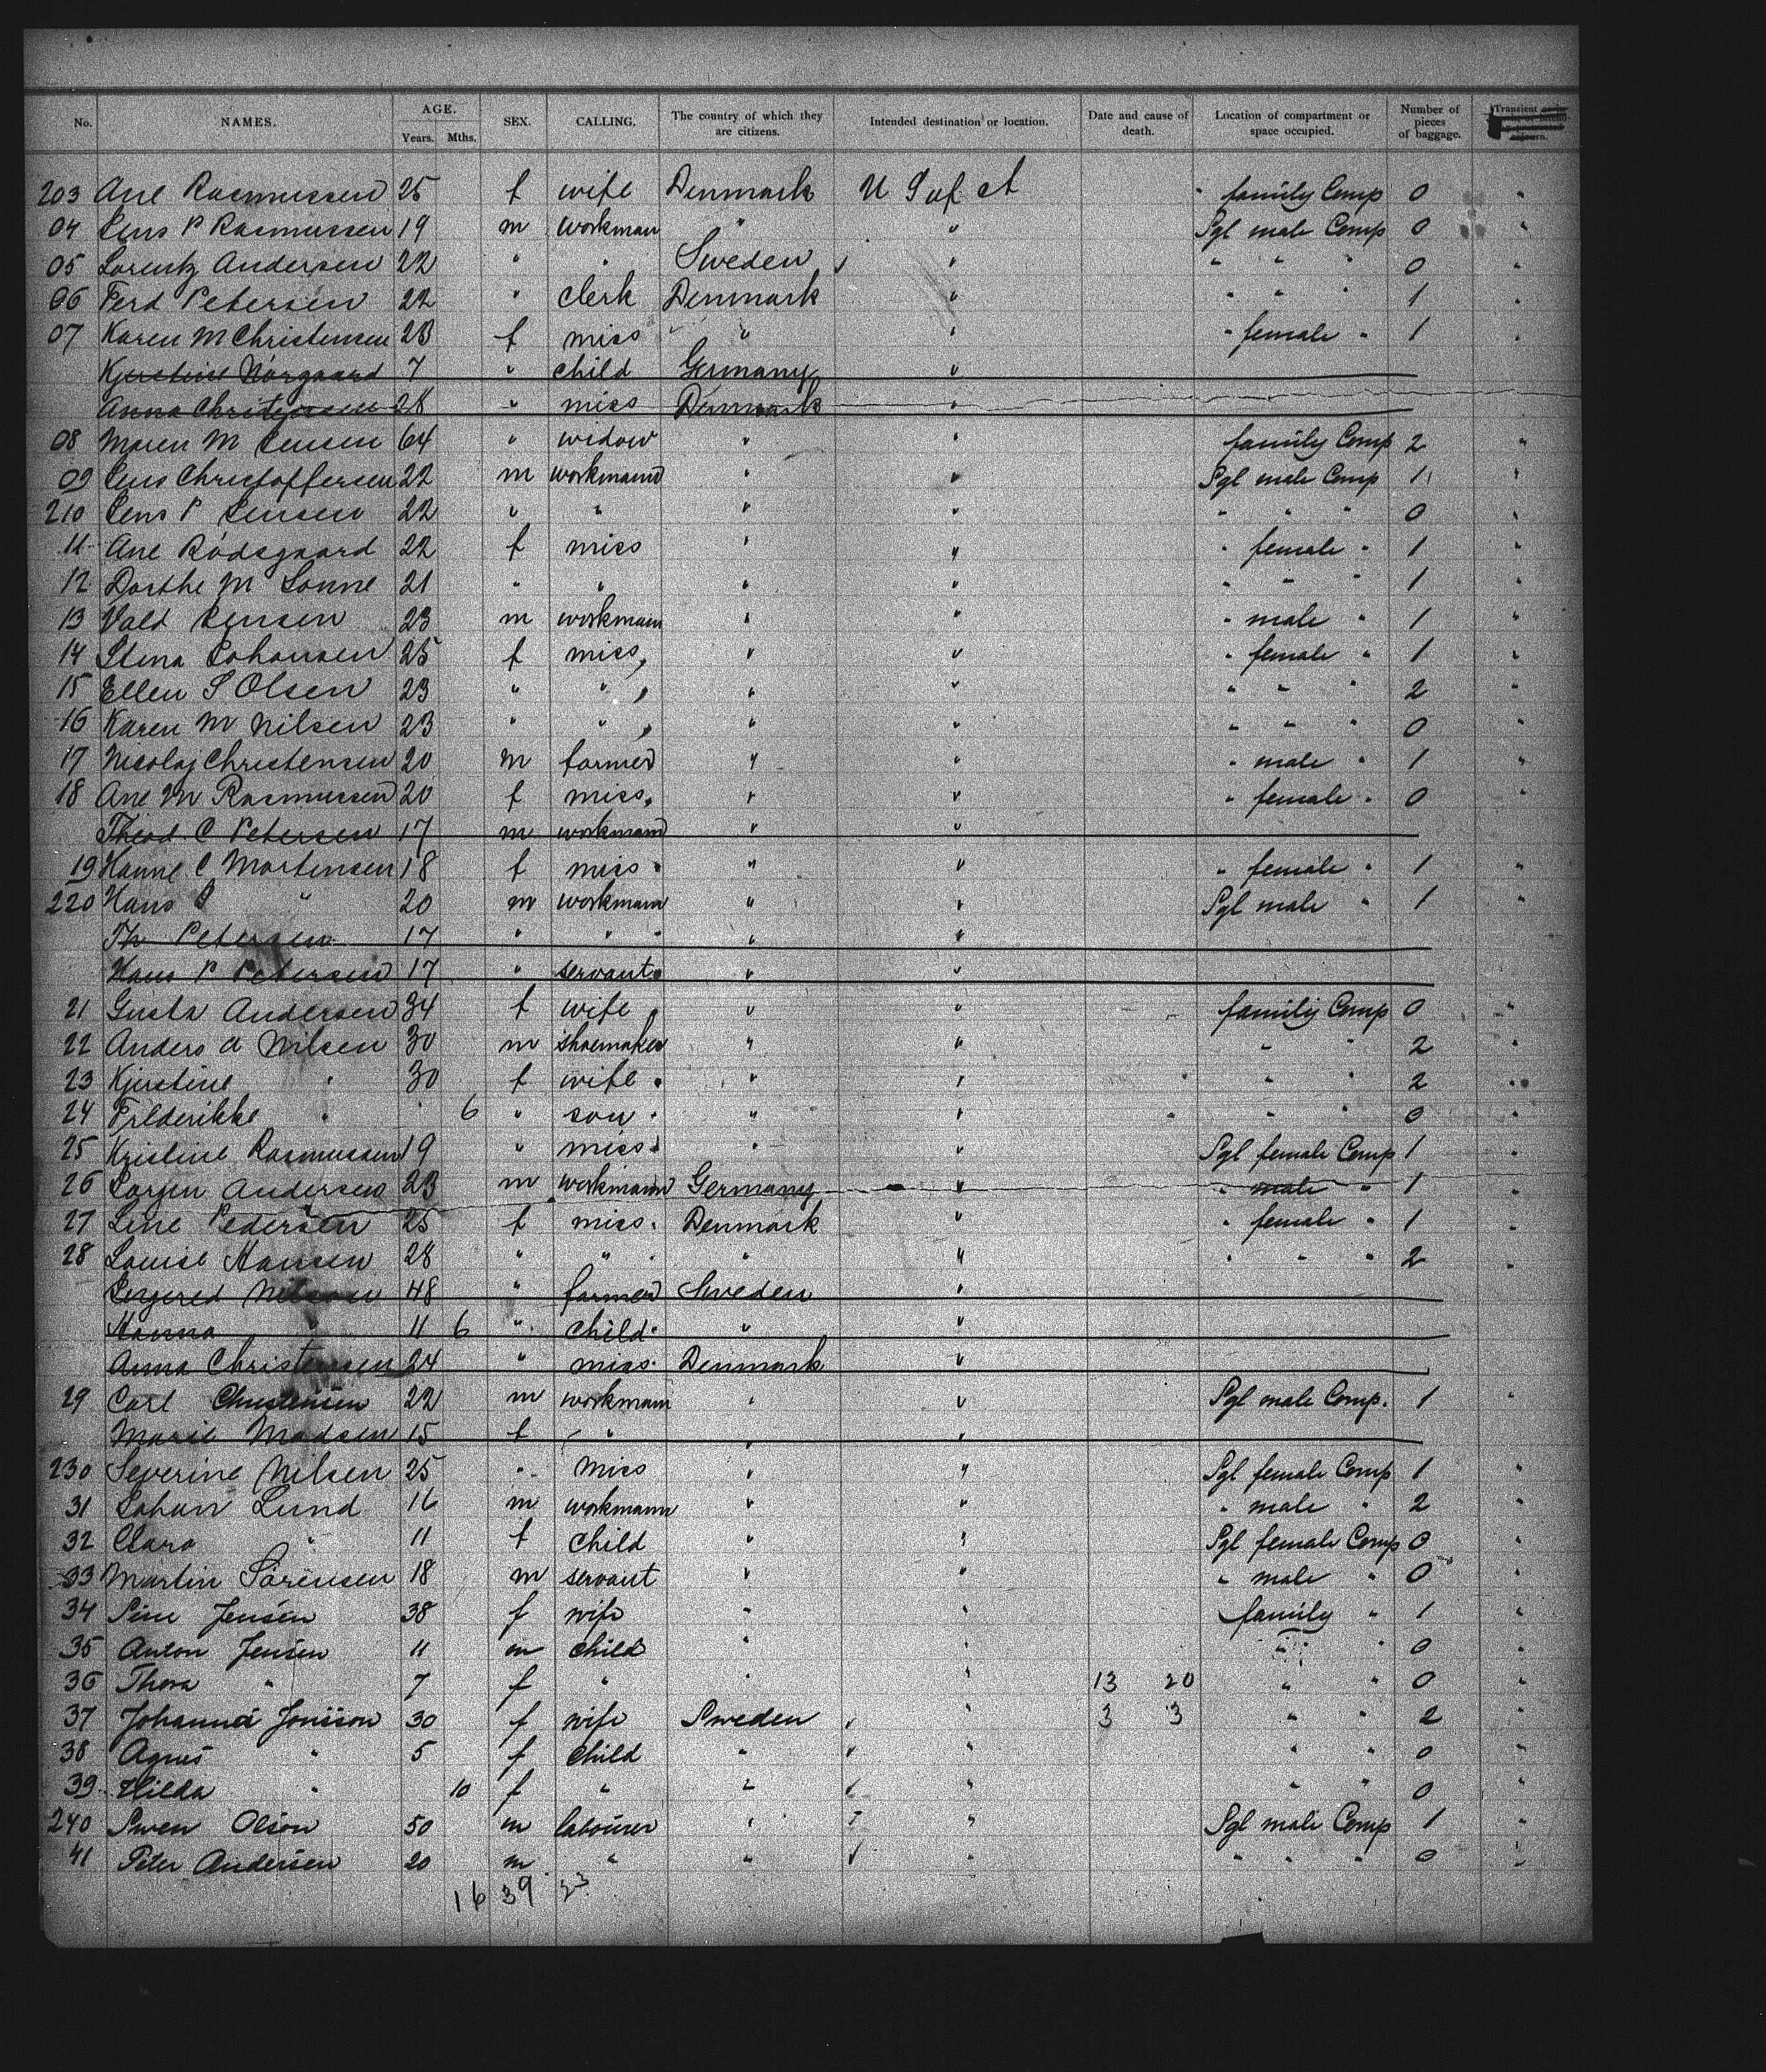 No. NAMES. AGE. Years. Mths. SEX. CALLING. The country of which they are citizens. Intended destination or location. Date and cause of death. Location of compartment or space occupied. Number of pieces of baggage. Transient
203 Ane Rasmussen 25 f wife Denmark U S of A family Comp 0 "
04 Jens P Rasmussen 19 m workman " " Sgl male Comp 0 "
05 Lorentz Andersen 22 " " Sweden " " " " 0 "
06 Ferd Petersen 22 " clerk Denmark " " " " 1 "
07 Karen M Christensen 23 f miss " " " female " 1 "
Kjerstine Norgaard 7 " child Germany "
Anna Christensen 28 " miss Denmark "
08 Maren M Jensen 64 " widow " " family Comp 2 "
09 Jens Christoffersen 22 m workmann " " Sgl male Comp 1 "
210 Jens P Jensen 22 " " " " " " " 0 "
11 Ane Rodsgaard 22 f miss " " " female " 1 "
12 Dorthe M Sonne 21 " " " " " " " 1 "
13 Vald Jensen 23 m workmann " " " male " 1 "
14 Stina Johansen 25 f miss, " " " female " 1 "
15 Ellen S Olsen 23 " " " " " " " 2 "
16 Karen M Nilsen 23 " " " " " " " 0 "
17 Nicolaj Christensen 20 m farmer " " " male " 1 "
18 Ane M Rasmussen 20 f miss " " " female " 0 "
Theod. C Petersen 17 m workmann " "
19 Hanne C Mortensen 18 f miss " " " female " 1 "
220 Hans P " 20 m workmann " " Sgl male " 1 "
Th Petersen 17 " " " "
Hans P Petersen 17 " servant " "
21 Gusta Andersen 34 f wife " " family Comp 0 "
22 Anders A Nilsen 30 m shoemaker " " " " 2 "
23 Kjerstine " 30 f wife " " " " 2 "
24 Frederikke " " 6 " son " " " " 0 "
25 Kristine Rasmussen 19 " miss " " Sgl female Comp 1 "
26 Jorgen Andersen 23 m workmann Germany " " male " 1 "
27 Line Pedersen 25 f miss Denmark " " female " 1 "
28 Louise Hansen 28 " " " " " " " 2 "
Ingered Nilsson 48 " farmer Sweden "
Hanna " 11 6 " child " "
Anna Christensen 24 " miss Denmark "
29 Carl Christensen 22 m workmann " " Sgl male Comp. 1 "
Marie Madsen 15 f " " "
230 Severine Nilsen 25 " Miss " " Sgl female Comp 1 "
31 Johan Lund 16 m workmann " " " male " 2 "
32 Clara " 11 f child " " Sgl female Comp 0 "
33 Martin Sörensen 18 m servant " " " male " 0 "
34 Sine Jensen 38 f wife " " family " 1 "
35 Anton Jensen 11 m child " " " " 0 "
36 Thora " 7 f " " " 13 20 " " 0 "
37 Johanna Jonsson 30 f wife Sweden " 3 3 " " 2 "
38 Agnes " 5 f child " " " " 0 "
39 Hilda " 10 f " " " " " 0 "
240 Swen Olson 50 m labourer " " Sgl male Comp 1 "
41 Peter Andersen 20 m " " " " " " 0 "
16 39 23